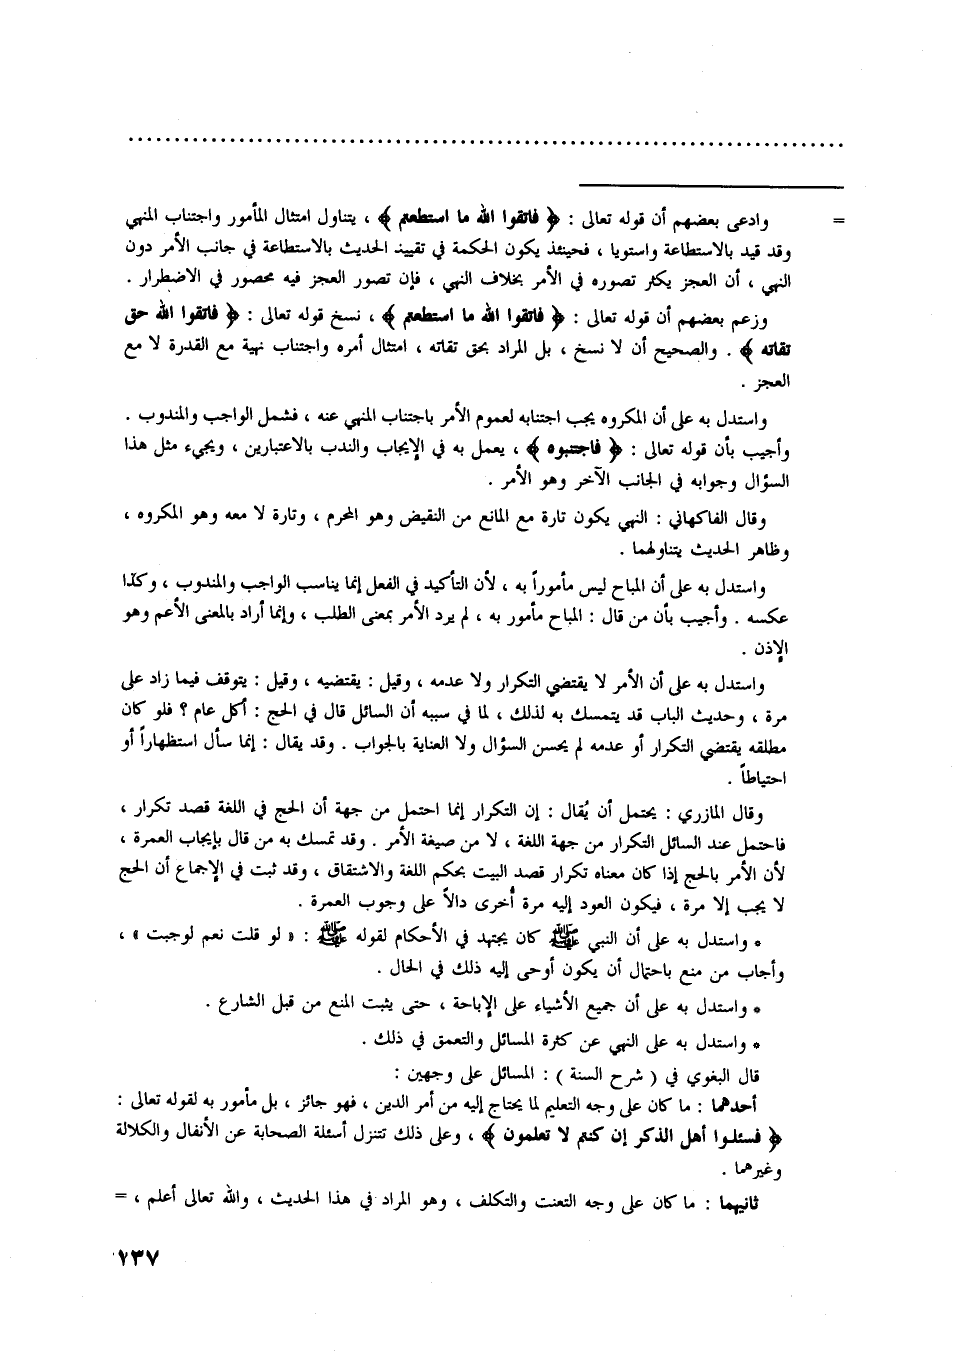 = وادعى بعضهم أن قوله تعالى : ﴿ فاتقوا الله ما استطعتم ﴾ ، يتناول امتثال المأمور واجتناب المنهي
وقد قيد بالاستطاعة واستويا ، فحينئذ يكون الحكمة في تقييد الحديث بالاستطاعة في جانب الأمر دون
النهي ، أن العجز يكثر تصوره في الأمر بخلاف النهي ، فإن تصور العجز فيه محصور في الاضطرار .
وزعم بعضهم أن قوله تعالى : ﴿ فاتقوا الله ما استطعتم ﴾ ، نسخ قوله تعالى : ﴿ فاتقوا الله حق
تقاته ﴾ . والصحيح أن لا نسخ ، بل المراد بحق تقاته ، امتثال أمره واجتناب نهية مع القدرة لا مع
العجز .
واستدل به على أن المكروه يجب اجتنابه لعموم الأمر باجتناب المنهي عنه ، فشمل الواجب والمندوب .
وأجيب بأن قوله تعالى : ﴿ فاجتنبوه ﴾ ، يعمل به في الإيجاب والندب بالاعتبارين ، ويجيء مثل هذا
السؤال وجوابه في الجانب الآخر وهو الأمر .
وقال الفاكهاني : النهي يكون تارة مع المانع من النقيض وهو المحرم ، وتارة لا معه وهو المكروه ،
وظاهر الحديث يتناولهما .
واستدل به على أن المباح ليس مأموراً به ، لأن التأكيد في الفعل إنما يناسب الواجب والمندوب ، وكذا
عكسه . وأجيب بأن من قال : المباح مأمور به ، لم يرد الأمر بمعنى الطلب ، وإنما أراد بالمعنى الأعم وهو
الإذن .
واستدل به على أن الأمر لا يقتضي التكرار ولا عدمه ، وقيل : يقتضيه ، وقيل : يتوقف فيما زاد على
مرة ، وحديث الباب قد يتمسك به لذلك ، لما في سببه أن السائل قال في الحج : أكل عام ؟ فلو كان
مطلقه يقتضي التكرار أو عدمه لم يحسن السؤال ولا العناية بالجواب . وقد يقال : إنما سأل استظهاراً أو
احتياطاً .
وقال المازري : يحتمل أن يُقال : إن التكرار إنما احتمل من جهة أن الحج في اللغة قصد تكرار ،
فاحتمل عند السائل التكرار من جهة اللغة ، لا من صيغة الأمر . وقد تمسك به من قال بإيجاب العمرة ،
لأن الأمر بالحج إذا كان معناه تكرار قصد البيت بحكم اللغة والاشتقاق ، وقد ثبت في الإجماع أن الحج
لا يجب إلا مرة ، فيكون العود إليه مرة أُخرى دالاً على وجوب العمرة .
* واستدل به على أن النبي ﷺ كان يجتهد في الأحكام لقوله ﷺ : « لو قلت نعم لوجبت » ،
وأجاب من منع باحتمال أن يكون أوحى إليه ذلك في الحال .
* واستدل به على أن جميع الأشياء على الإباحة ، حتى يثبت المنع من قبل الشارع .
* واستدل به على النهي عن كثرة المسائل والتعمق في ذلك .
قال البغوي في ( شرح السنة ) : المسائل على وجهين :
أحدهما : ما كان على وجه التعليم لما يحتاج إليه من أمر الدين ، فهو جائز ، بل مأمور به لقوله تعالى :
﴿ فسئلوا أهل الذكر إن كنتم لا تعلمون ﴾ ، وعلى ذلك تتنزل أسئلة الصحابة عن الأنفال والكلالة
وغيرهما .
ثانيهما : ما كان على وجه التعنت والتكلف ، وهو المراد في هذا الحديث ، والله تعالى أعلم ، =
١٣٧